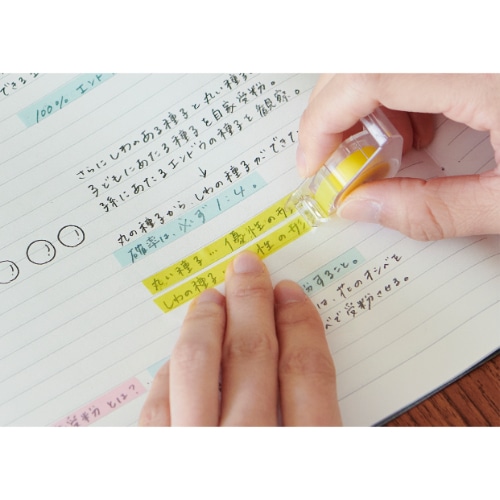 できる
100% エンド
さらにしわのある種子と丸い種子
子どもにあたる種子を自家受粉。
孫にあたるエンドウの種子を観察。
↓
丸の種子から しわの種子ができた
確率は、必ず1:4。
丸い種子… 優性の
しわの種子 性の
することは、
は、花のオシベを
べで受粉させる。
受粉とは?